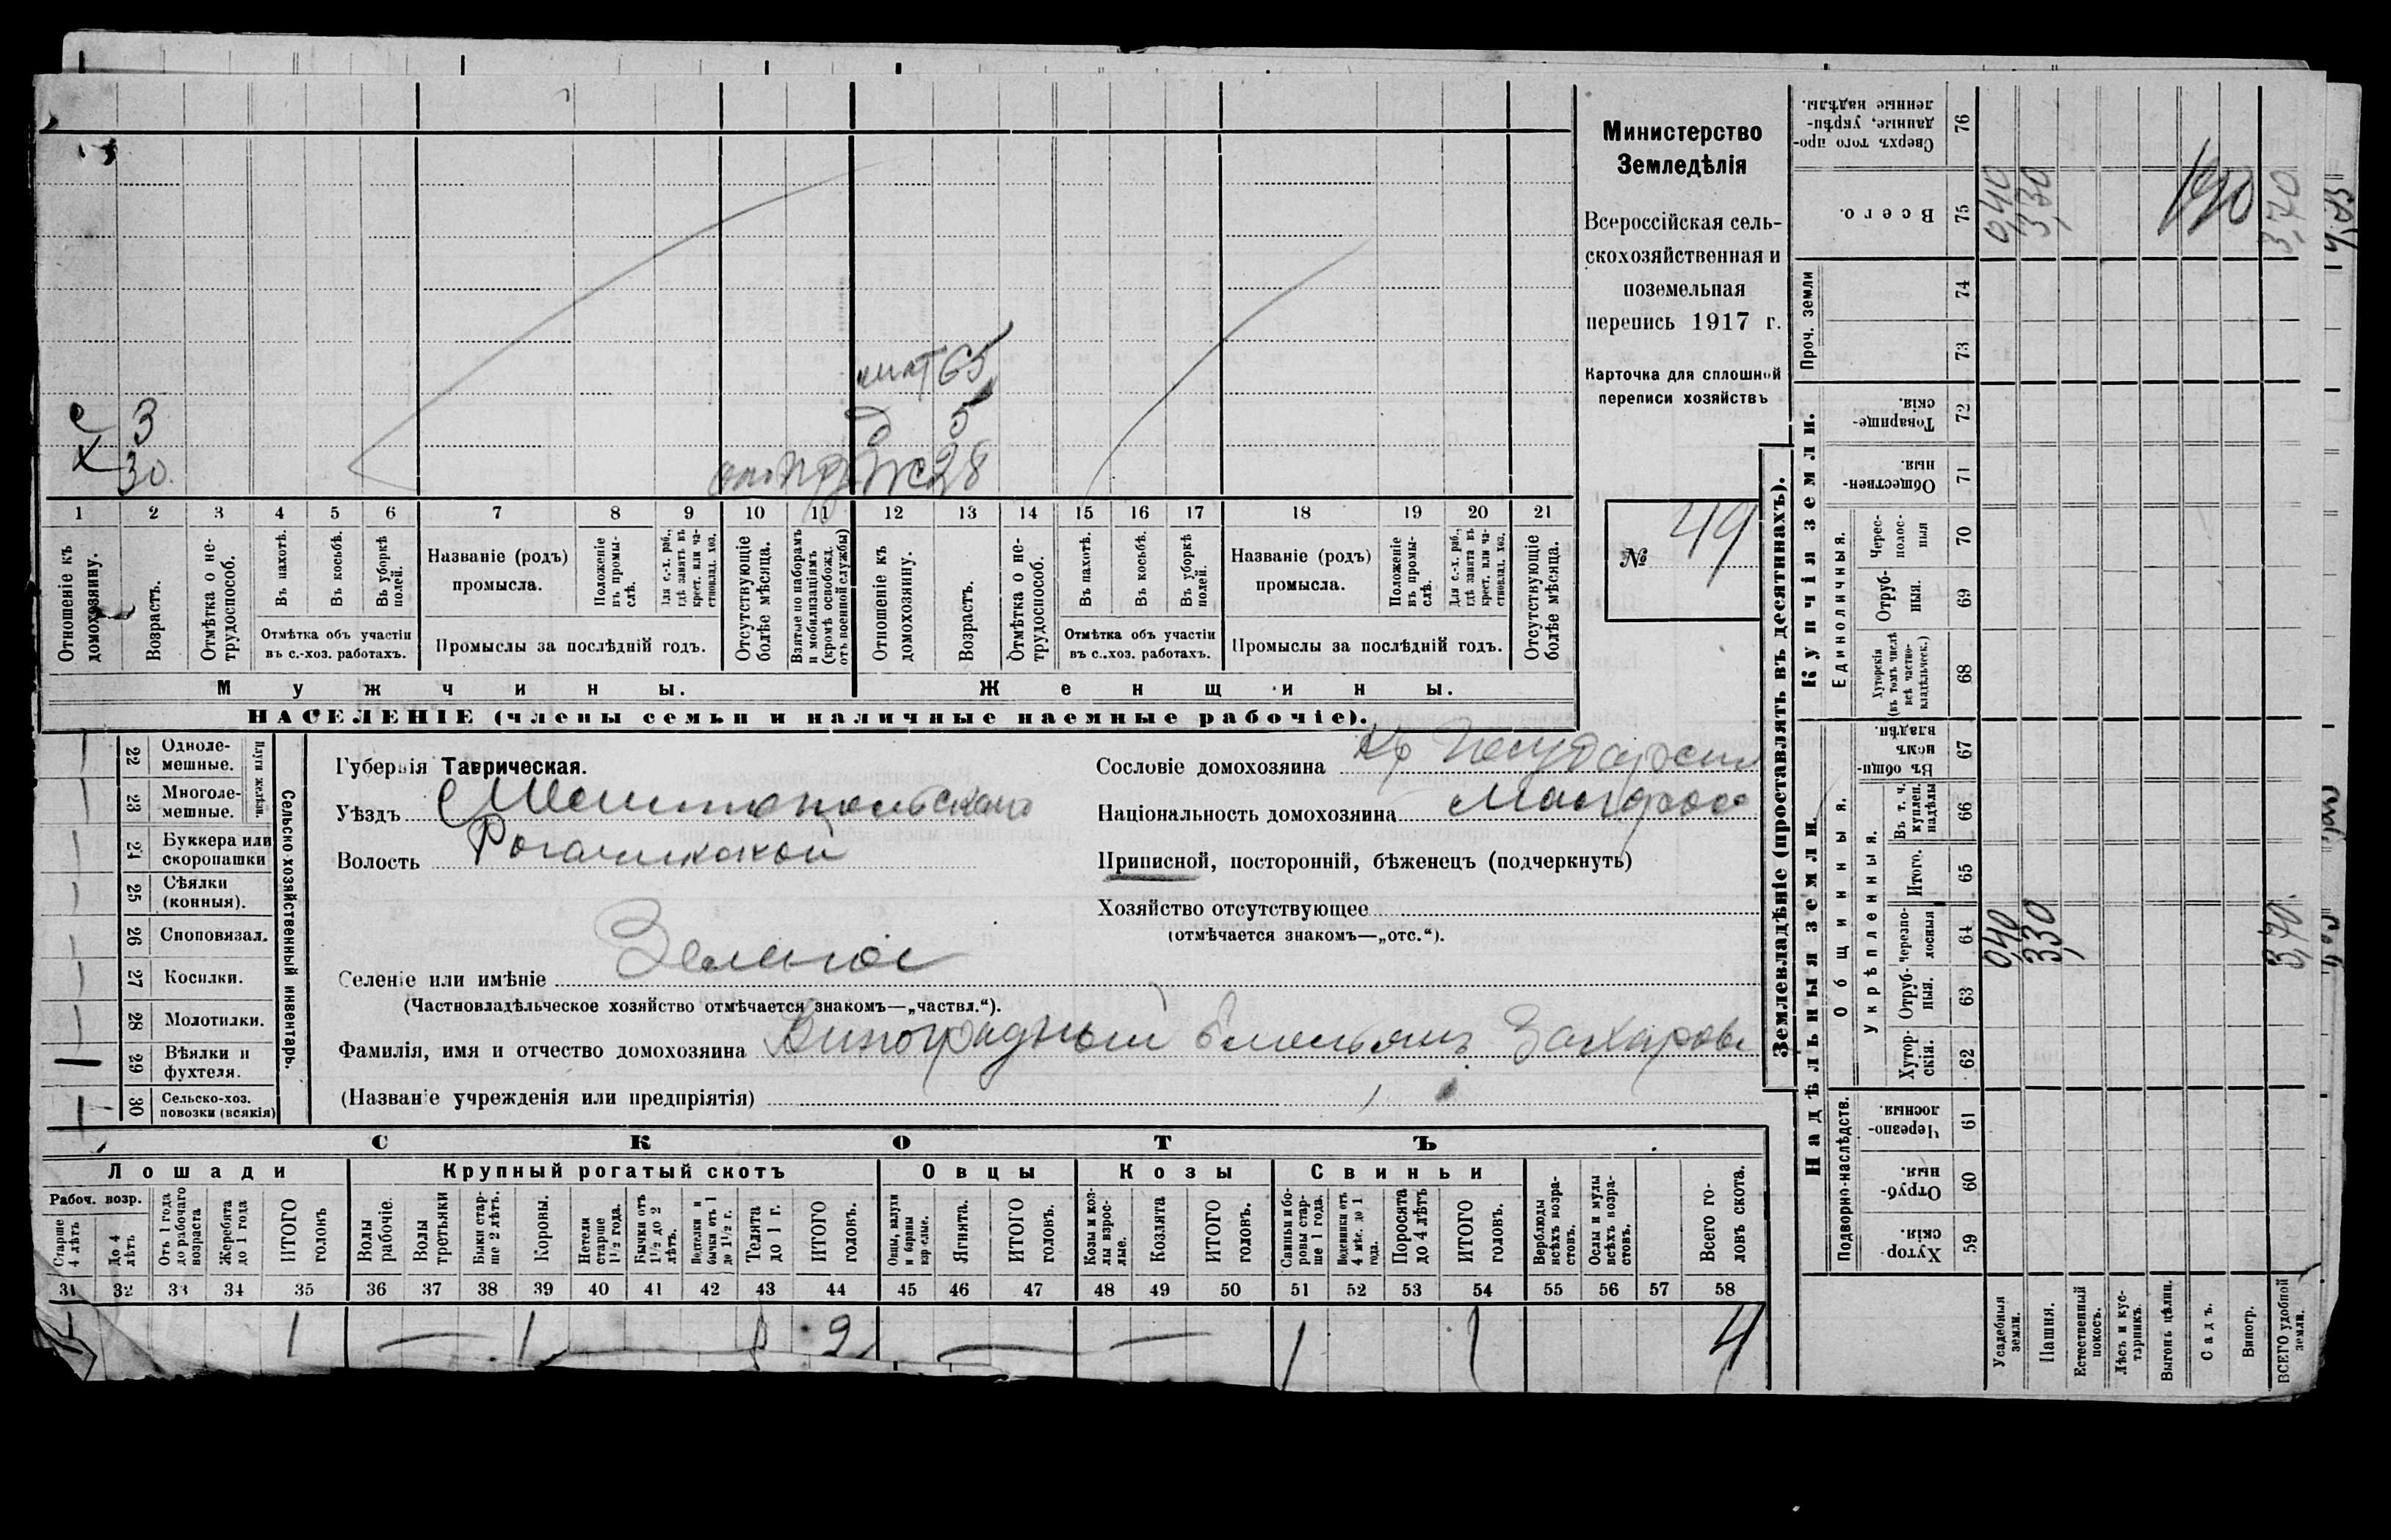 Министерство
Земледѣлія
Всероссійская сель-
скохозяйственная и
поземельная
перепись 1917 г.
Карточка для сплошной
переписи хозяйствъ
№ 49
с 3
х 30
мат 65
д 5
ж 28
1 2 3 4 5 6 7 8 9 10 11 12 13 14 15 16 17 18 19 20 21
Отношеніе къ домохозяину.
Возрастъ.
Отмѣтка о не-трудоспособ.
Въ пахотѣ.
Въ косьбѣ.
Въ уборкѣ полей.
Отмѣтка объ участіи въ с.-хоз. работахъ.
Названіе (родъ) промысла.
Положеніе въ промы-слѣ.
Для с.-х. раб., гдѣ занятъ въ крест. или ча-стновлад. хоз.
Промыслы за послѣдній годъ.
Отсутствующіе болѣе мѣсяца.
Взятые по наборамъ и мобилизаціямъ (кромѣ освобожд. отъ военной службы)
Отношеніе къ домохозяину.
Возрастъ.
Отмѣтка о не-трудоспособ.
Въ пахотѣ.
Въ косьбѣ.
Въ уборкѣ полей.
Отмѣтка объ участіи въ с.-хоз. работахъ.
Названіе (родъ) промысла.
Положеніе въ промы-слѣ.
Для с.-х. раб., гдѣ занята въ крест. или ча-стновлад. хоз.
Промыслы за послѣдній годъ.
Отсутствующіе болѣе мѣсяца.
Мужчины. Женщины.
НАСЕЛЕНІЕ (члены семьи и наличные наемные рабочіе).
Сельско-хозяйственный инвентарь.
Плуги желѣзн.
22 Одноле-мешные.
23 Многоле-мешные.
24 Буккера или скоропашки
25 Сѣялки (конныя).
26 Сноповязал.
27 Косилки.
28 Молотилки.
29 Вѣялки и фухтеля.
30 Сельско-хоз. повозки (всякія)
Губернія Таврическая.
Уѣздъ Мелитопольскаго
Волость Рогачикской
Селеніе или имѣніе Зеленое
(Частновладѣльческое хозяйство отмѣчается знакомъ—„частвл.“).
Фамилія, имя и отчество домохозяина Виноградный Емельянъ Захаровъ
(Названіе учрежденія или предпріятія)
Сословіе домохозяина Кр Государствен
Національность домохозяина Малорос
Приписной, посторонній, бѣженецъ (подчеркнуть)
Хозяйство отсутствующее
(отмѣчается знакомъ—„отс.“).
СКОТЪ
Лошади Крупный рогатый скотъ Овцы Козы Свиньи
Рабоч. возр.
Старше 4 лѣтъ
До 4 лѣтъ
Отъ 1 года до рабочаго возраста
Жеребята до 1 года
ИТОГО головъ
Волы рабочіе.
Волы третьяки
Быки стар-ше 2 лѣтъ.
Коровы.
Нетели старше 1½ года.
Бычки отъ 1½ до 2 лѣтъ.
Подтелки и бычки отъ 1 до 1½ г.
Телята до 1 г.
ИТОГО головъ.
Овцы, валухи и бараны взрослые.
Ягнята.
ИТОГО головъ.
Козы и коз-лы взрос-лые.
Козлята
ИТОГО головъ.
Свиньи и бо-ровы стар-ше 1 года.
Подсвинки отъ 4 мѣс. до 1 года.
Поросята до 4 лѣтъ
ИТОГО головъ.
Верблюды всѣхъ возра-стовъ.
Ослы и мулы всѣхъ возра-стовъ.
Всего го-ловъ скота.
31 32 33 34 35 36 37 38 39 40 41 42 43 44 45 46 47 48 49 50 51 52 53 54 55 56 57 58
1 1 — 1 1 2 — — 1 1 4
Землевладѣніе (проставлять въ десятинахъ).
Надѣльныя земли. Купчія земли. Проч. земли
Подворно-наслѣдств. Общинныя. Укрѣпленныя. Единоличныя.
Хутор-скія. 59
Отруб-ныя. 60
Черезпо-лосныя. 61
Хутор-скія. 62
Отруб-ныя. 63
Черезпо-лосныя 64
Итого. 65
Въ т. ч. куплен. надѣлы 66
Въ общин-номъ владѣн. 67
Хуторскія (въ томъ числѣ всѣ частно-владѣльческ.) 68
Отруб-ныя. 69
Черес-полос-ныя 70
Обществен-ныя. 71
Товарище-скія. 72
73
74
Всего. 75
Сверхъ того про-данные, укрѣп-ленные надѣлы. 76
Усадебныя земли. 0,40 0,40
Пашня. 3,30 3,30
Естественный покосъ.
Лѣсъ и кус-тарникъ.
Выгонъ цѣлин.
Садъ.
Виногр.
ВСЕГО удобной земли. 3,70. 3,70